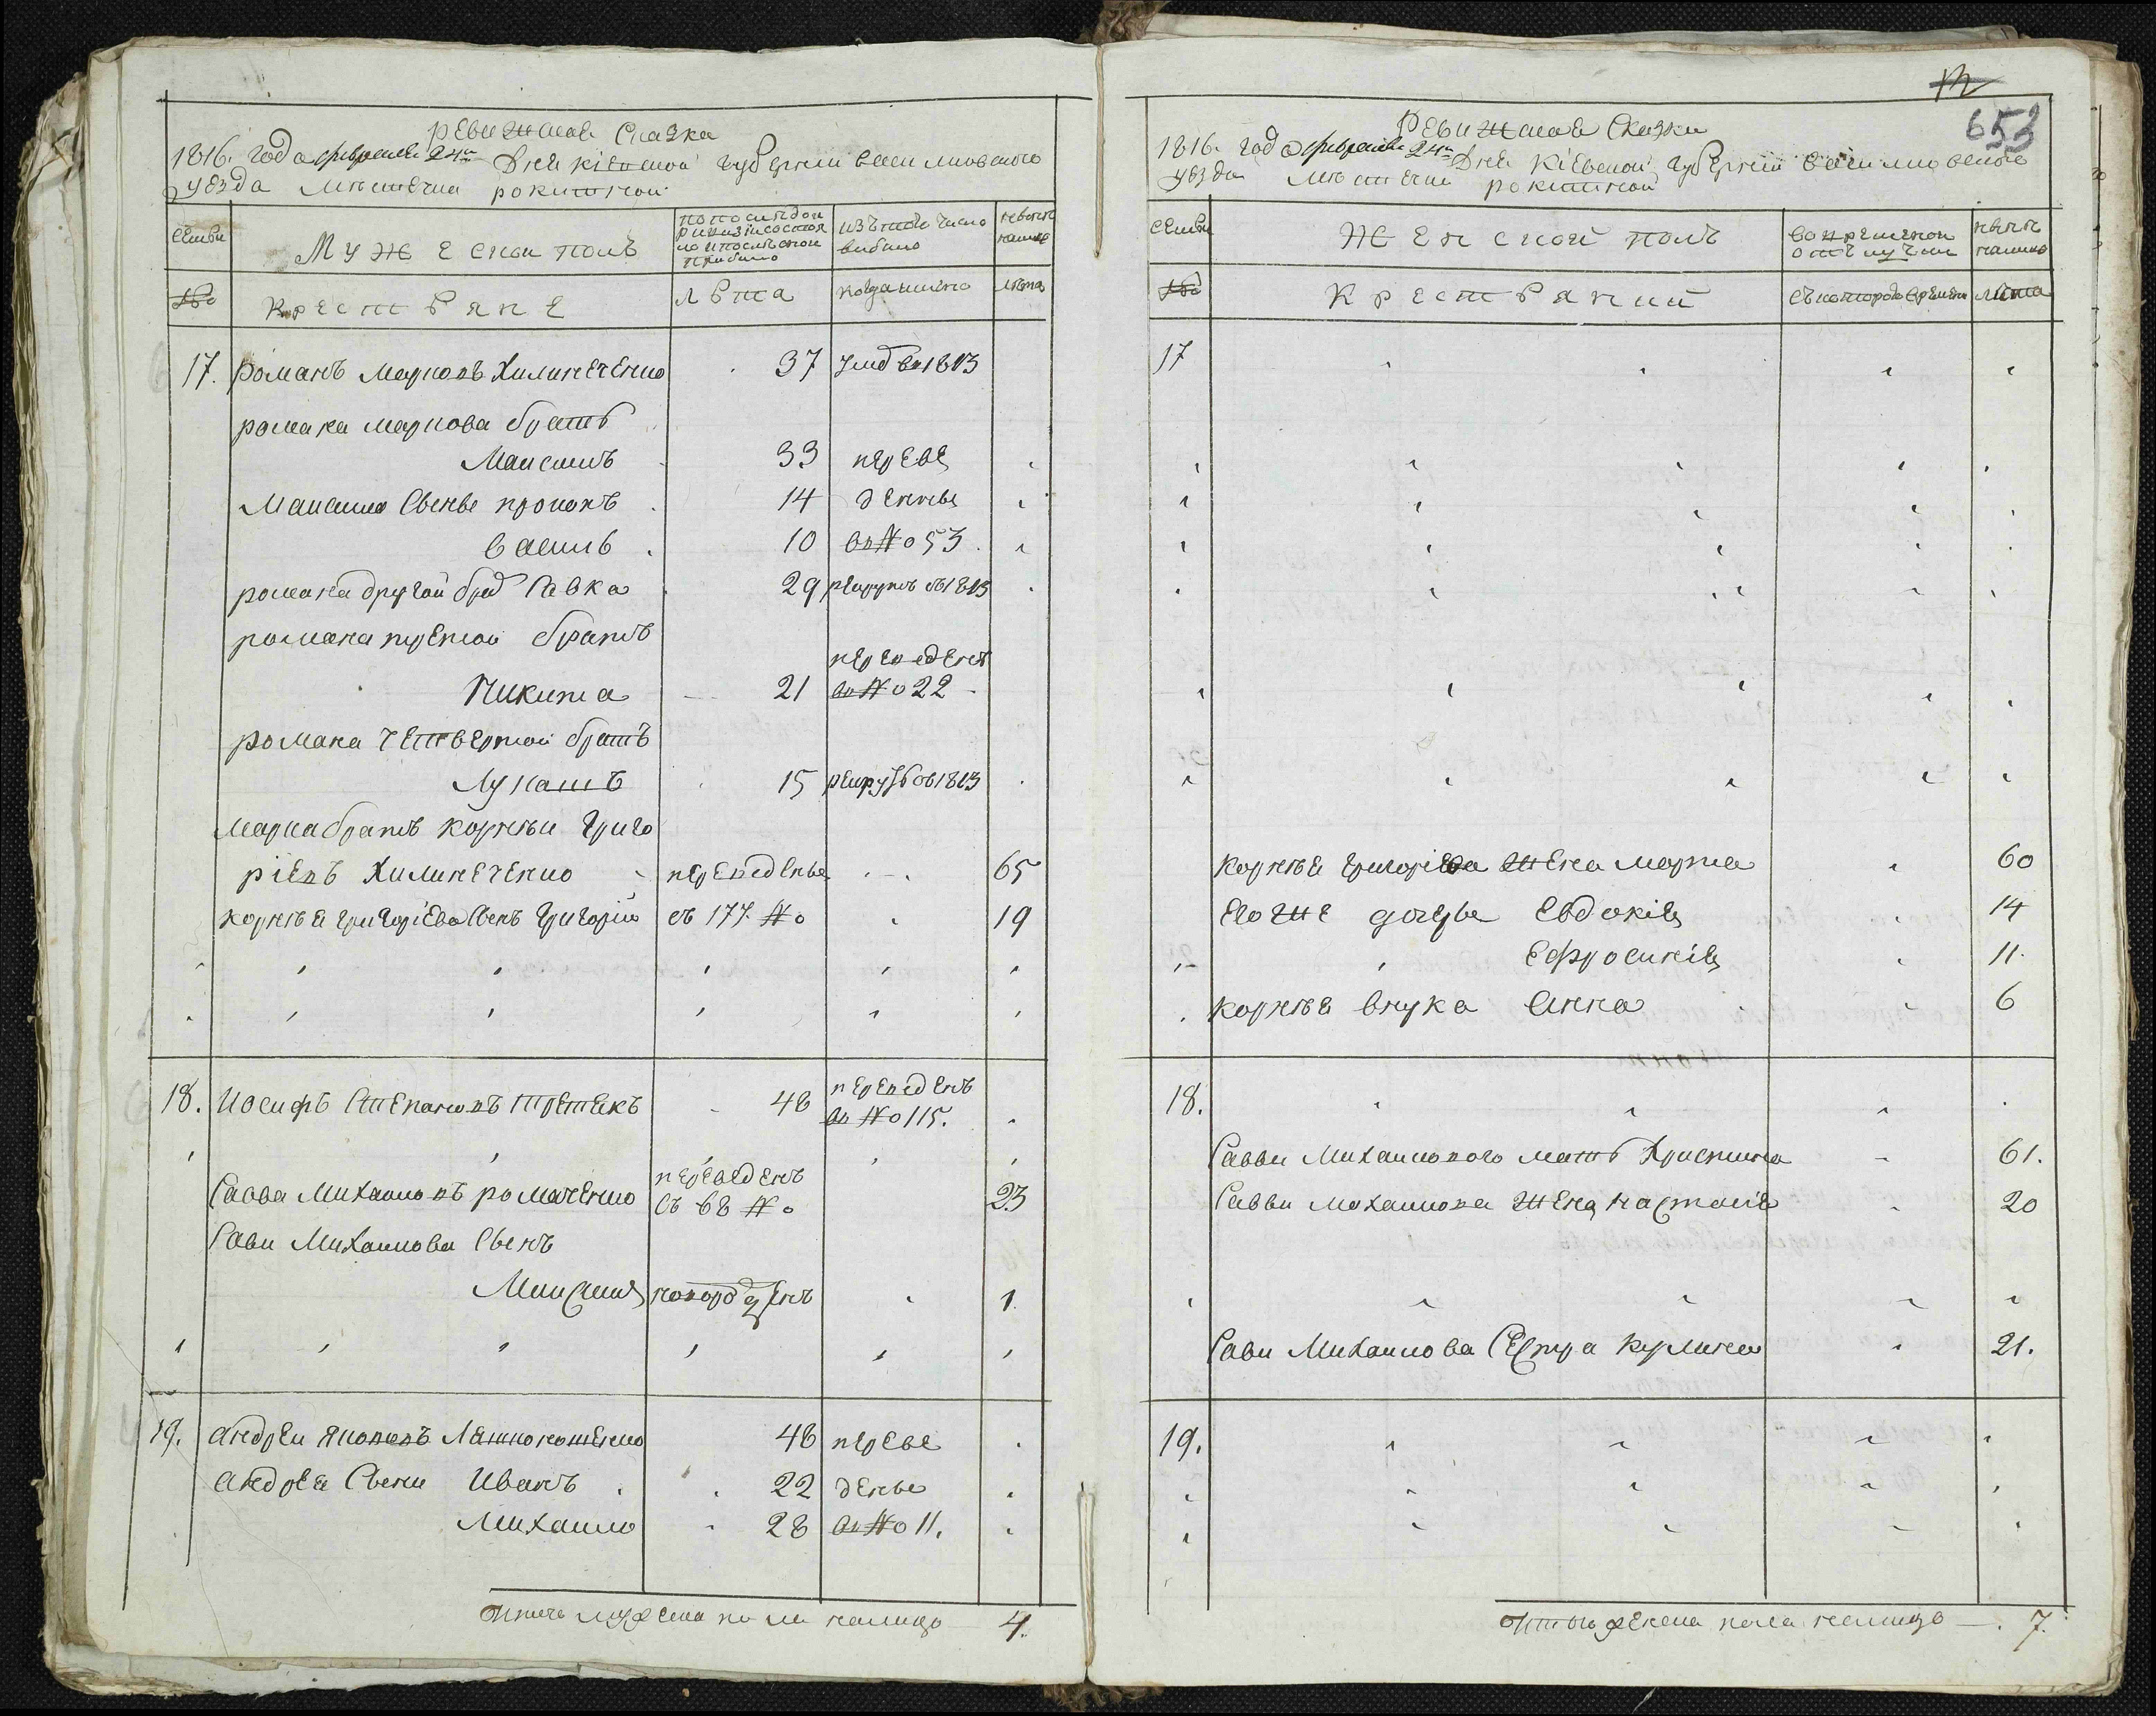 Ревижская Сказка
1816. года февраля 24го Дня кіевской губерніи васильковского
уезда Местечка рокитной
семьи
Мужеской полъ
по последней ревизіи состояло и после оной прибыло
изъ того числа выбыло
ныне налицо
№о
крестьяне
лета
когда имено
лета
17. романъ марковъ Хилинеченко 37 умер въ 1813
романа маркова братъ
Максимъ 33 переве
Максима Сыны прокопъ 14 денны
василь 10 въ №о 53
романа другой брат Савка 29 рекрутъ въ 1813
романа третой братъ
переведенъ
Никита 21 въ №о 22
романа четвертой братъ
Лукашъ 15 рекрутъ въ 1813
марка братъ корней Григо
ріевъ Хилинеченко переведены 65
корнея григоріева Сынъ григорій съ 177 №о 19
18. Иосифъ Степановъ третякъ 48 переведенъ
въ №о 115.
Савва Михайловъ ромаченко переведенъ
съ 68 №о 23
Сави Михайлова Сынъ
Максимъ новорожденъ 1
19. андрей яковлевъ 48 переве
андрея Сыны Иванъ 22 дены
Михайло 28 въ №о 11.
Итого мужеска пола налицо 4.
12
653
Ревижская Сказка
1816. года февраля 24го Дня Кіевской губерніи васильковского
уезда местечка рокитной
семьи
Женской полъ
во временной отлучки
ныне налицо
№о
Крестьянки
съ которого времени
лета
17
корнея григоріева жена марта 60
его же дочеры Евдокія 14
Ефросинія 11.
корнея внука анна 6
18.
Саввы Михайлового мать Христина 61.
Саввы Михайлова жена настасія 20
Сави Михайлова Сестра 21.
19.
Итого женска пола налицо 7.